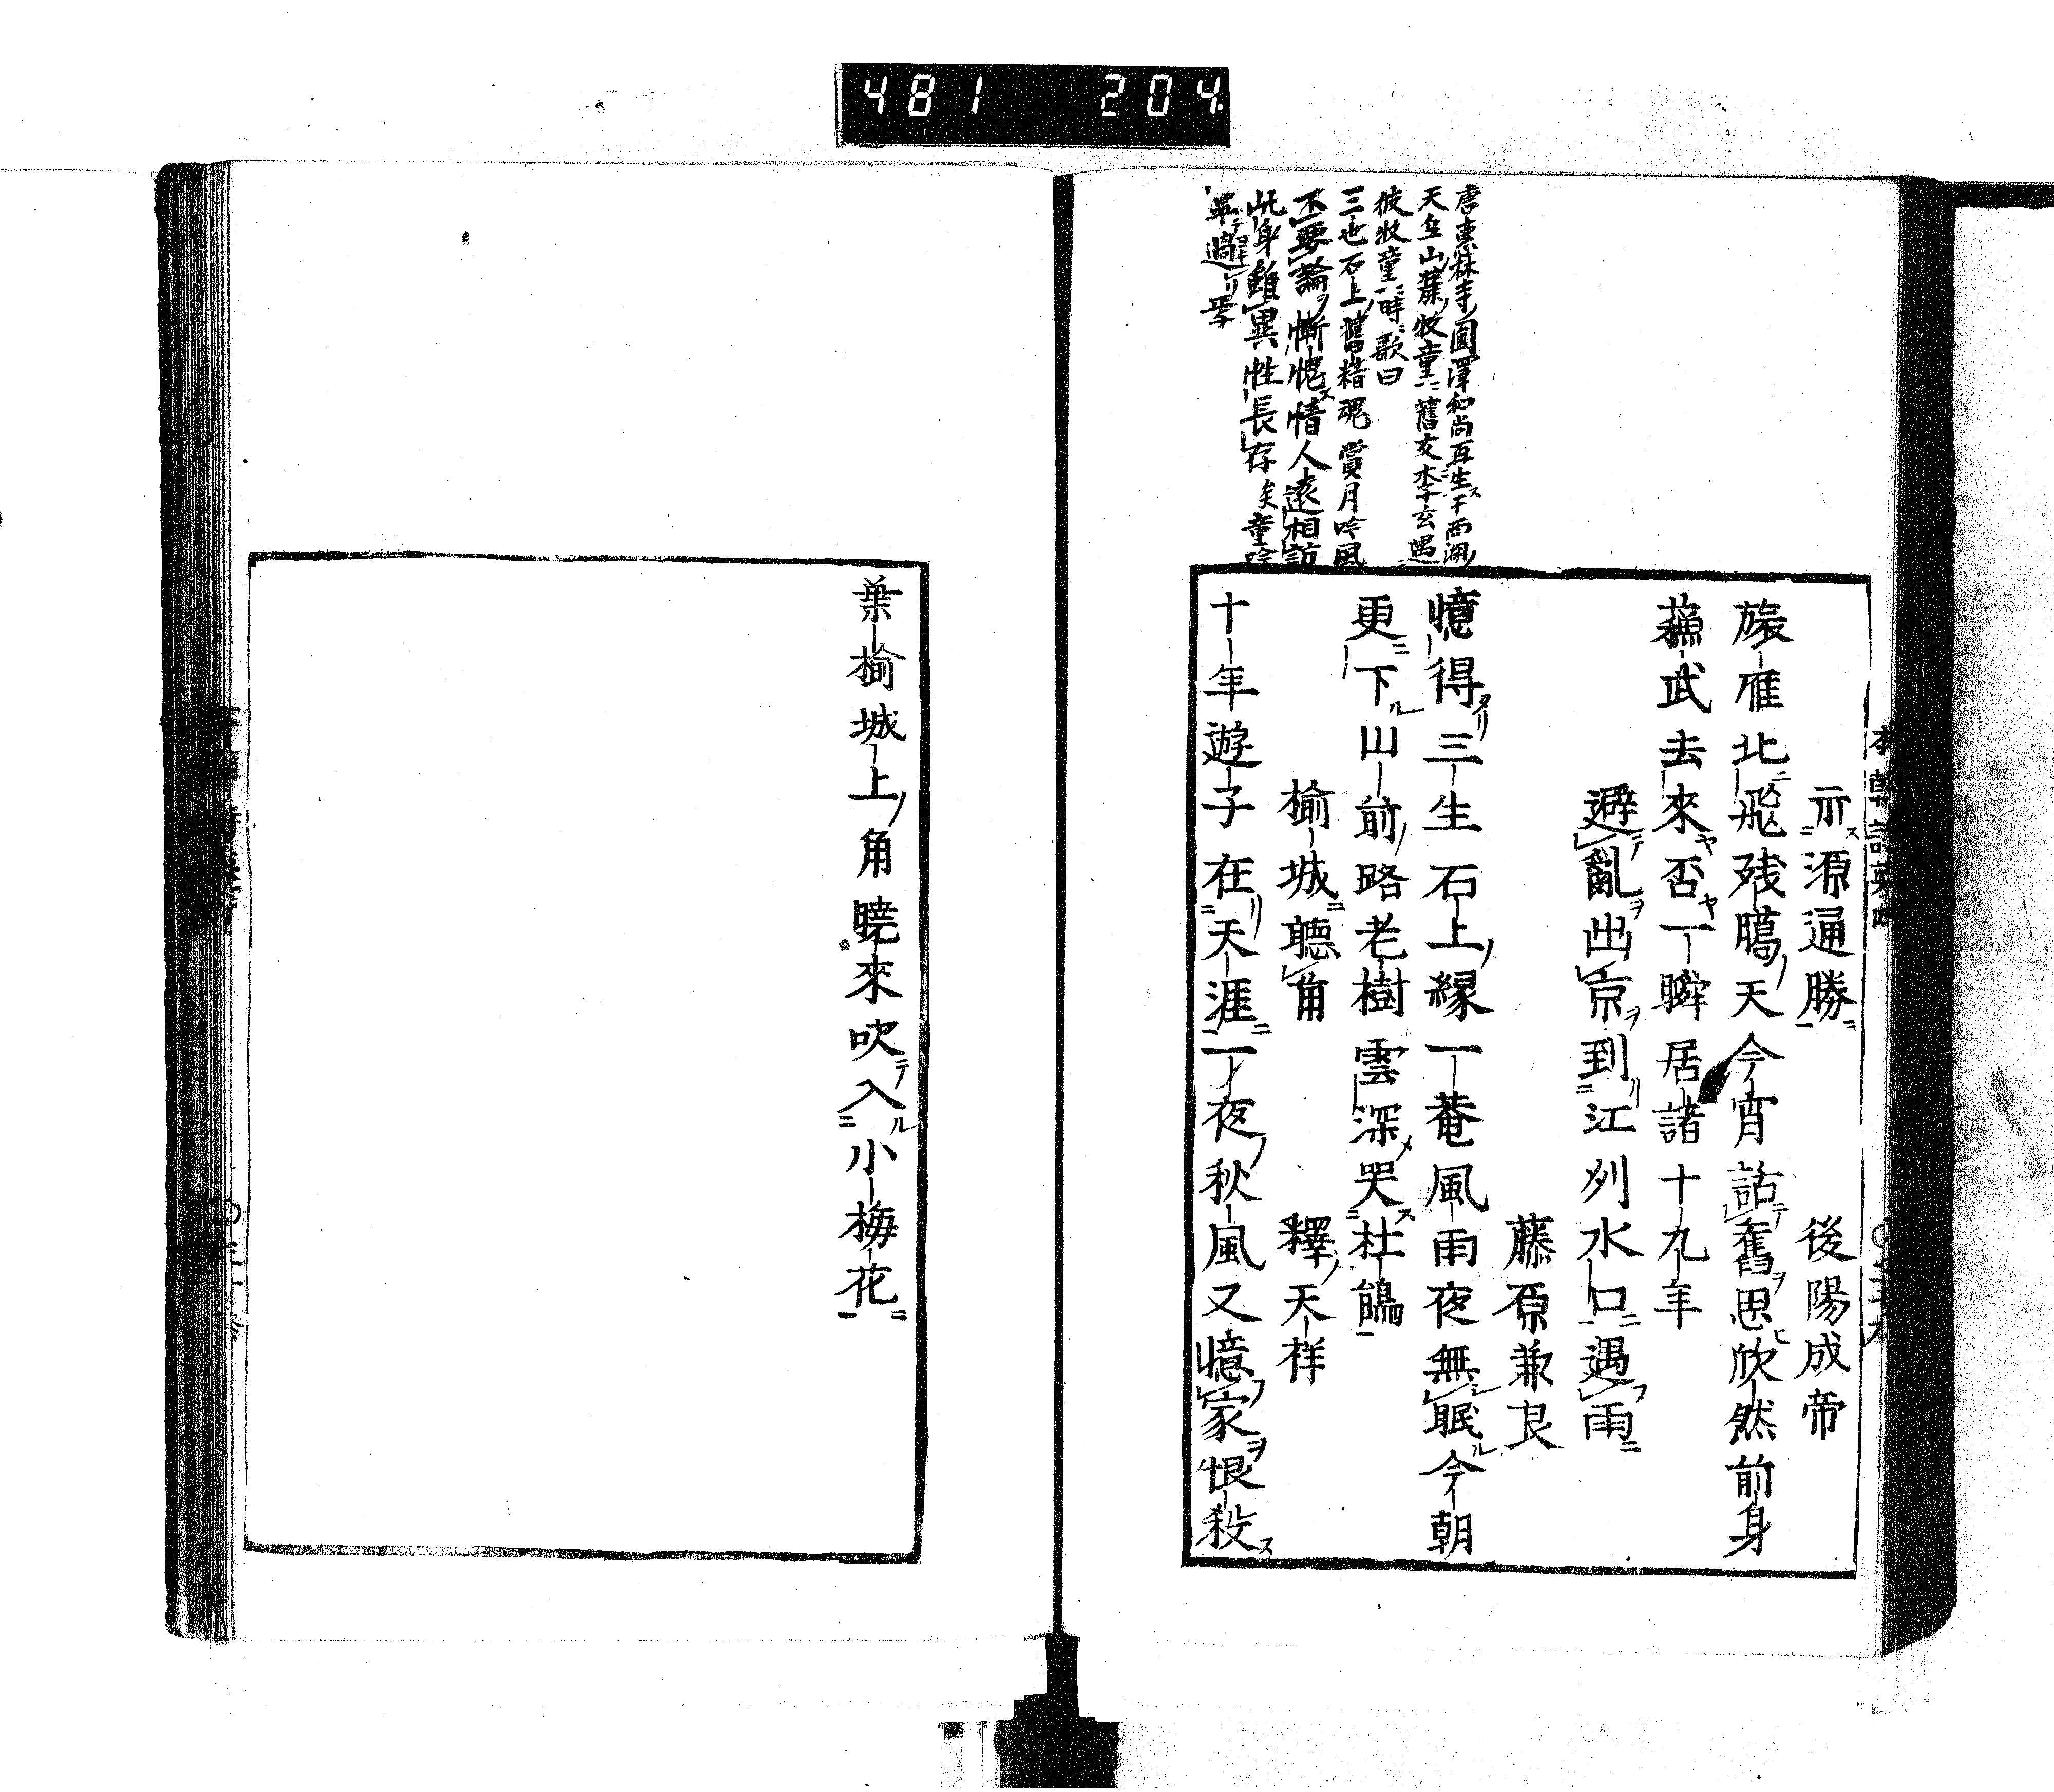 481 204
唐惠林寺圓澤和尚再生于西湖
天竺山麓牧童舊友李玄遇
彼牧童時歌曰
三世石上舊精魂賞月吟風
不要論慚愧情人遠相訪
此身雖異性長存矣童吟
畢
示源通勝 後陽成帝
旅雁北飛残臈天今宵話舊思欣然前身
蘓武去來否一瞬居諸十九年
避亂出京到江州水口遇雨
藤原兼良
憶得三生石上縁一菴風雨夜無眠今朝
更下山前路老樹雲深哭杜鵑
揄城聽角 釋天祥
十年遊子在天涯一夜秋風又憶家恨殺
葉揄城上角曉來吹入小梅花